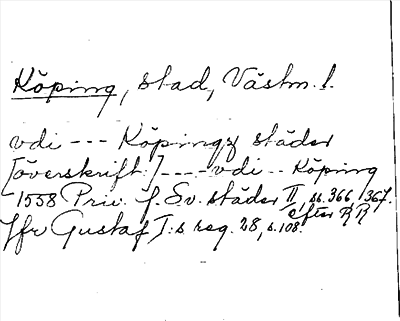 Köping, stad, Västm. l.
vdi --- Köpingz städer
[överskrift:] ---- vdi -- Köping
1558 Priv. f. Sv. städer II, ss. 366, 367.
efter RR
Jfr Gustaf I:s reg. 28, s. 108.